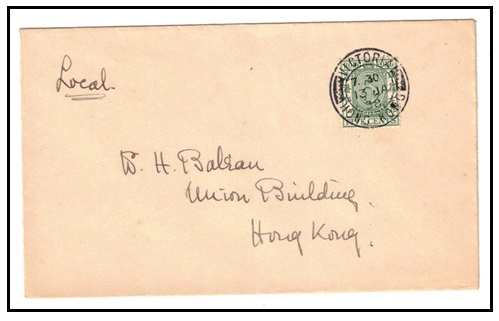 Local.
VICTORIA
7.30
13 JA
HONG KONG
W. H. Balean
Union Building.
Hong Kong.